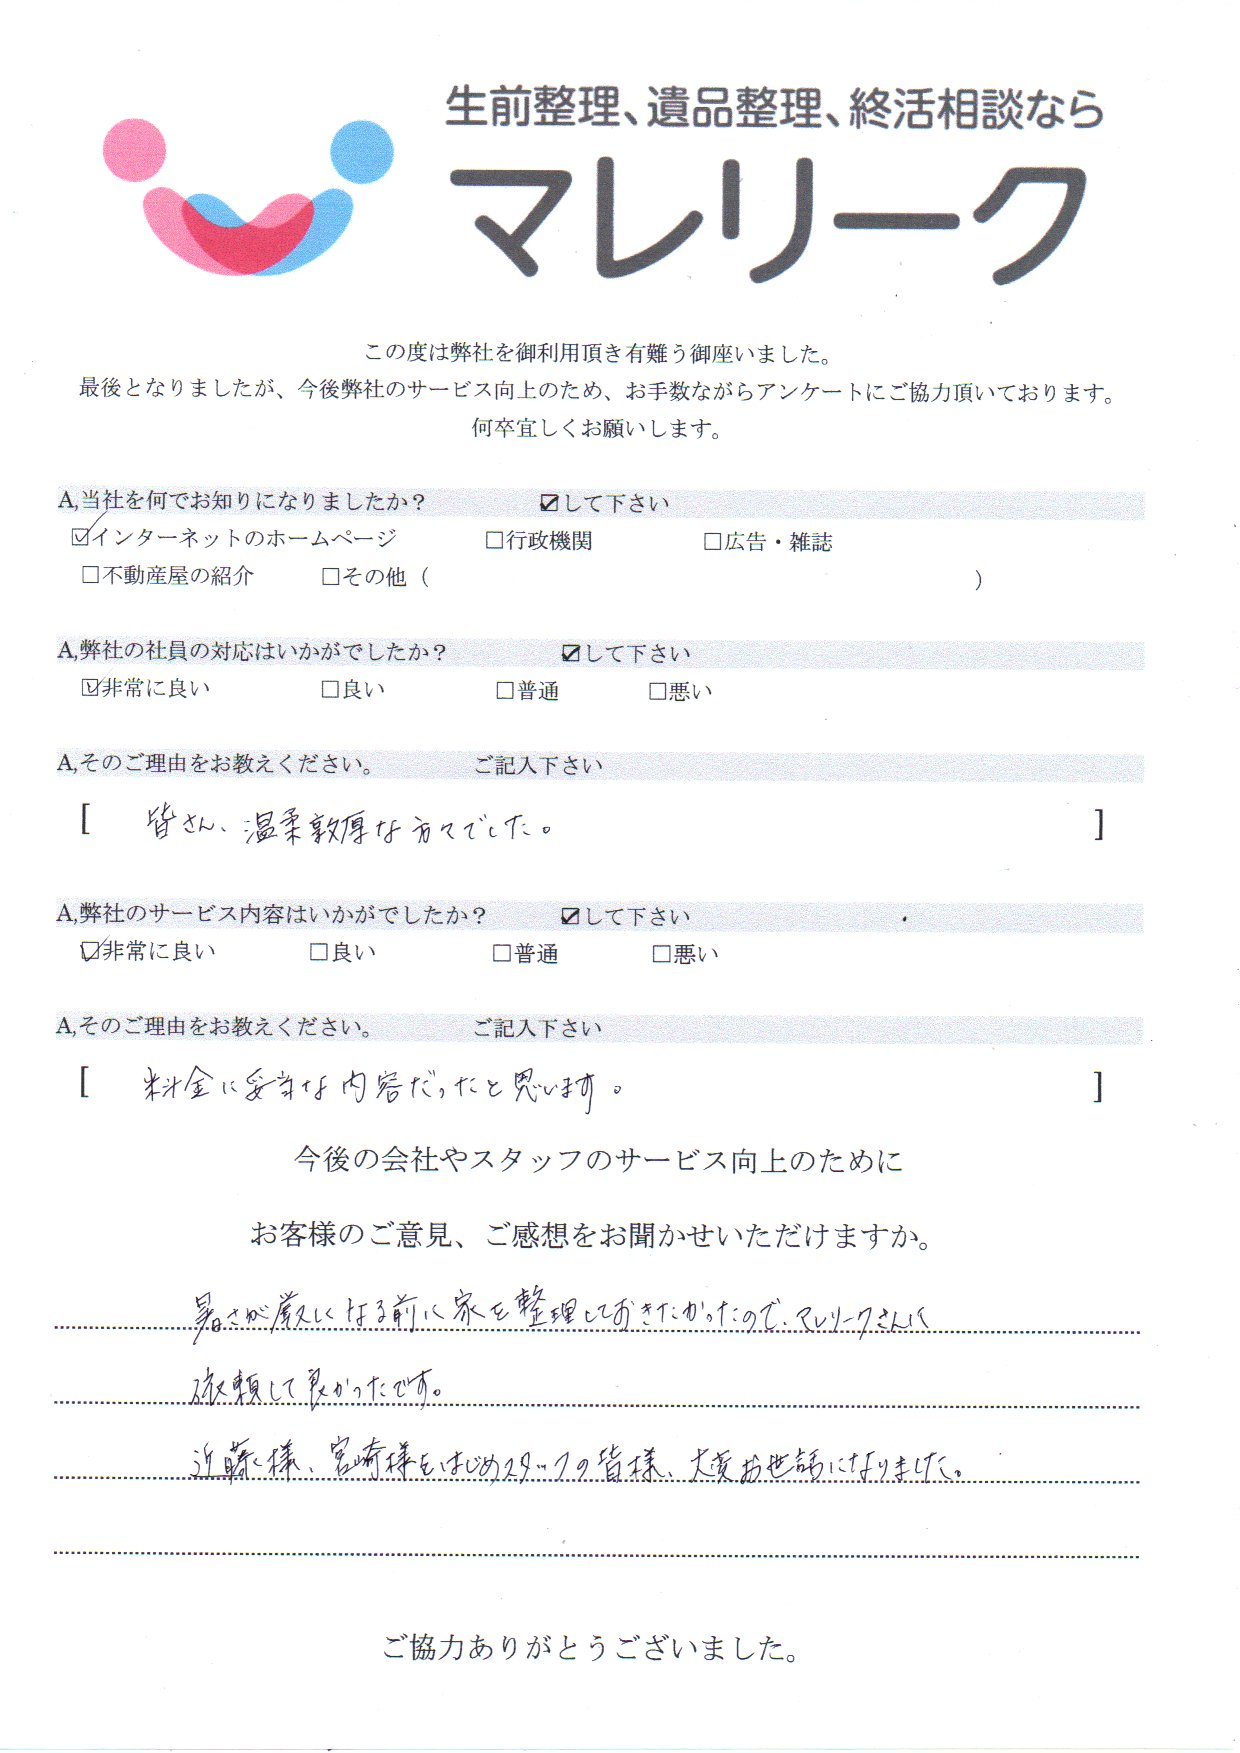 生前整理、遺品整理、終活相談なら
マレリーク
この度は弊社を御利用頂き有難う御座いました。
最後となりましたが、今後弊社のサービス向上のため、お手数ながらアンケートにご協力頂いております。
何卒宜しくお願いします。
A,当社を何でお知りになりましたか? ☑して下さい
☑インターネットのホームページ □行政機関 □広告・雑誌
□不動産屋の紹介 □その他（ ）
A,弊社の社員の対応はいかがでしたか? ☑して下さい
☑非常に良い □良い □普通 □悪い
A,そのご理由をお教えください。 ご記入下さい
[ 皆さん、温柔敦厚な方々でした。 ]
A,弊社のサービス内容はいかがでしたか? ☑して下さい
☑非常に良い □良い □普通 □悪い
A,そのご理由をお教えください。 ご記入下さい
[ 料金に妥当な内容だったと思います。 ]
今後の会社やスタッフのサービス向上のために
お客様のご意見、ご感想をお聞かせいただけますか。
暑さが厳しくなる前に家を整理しておきたかったので、マレリークさんに
依頼して良かったです。
近藤様、宮崎様をはじめスタッフの皆様、大変お世話になりました。
ご協力ありがとうございました。